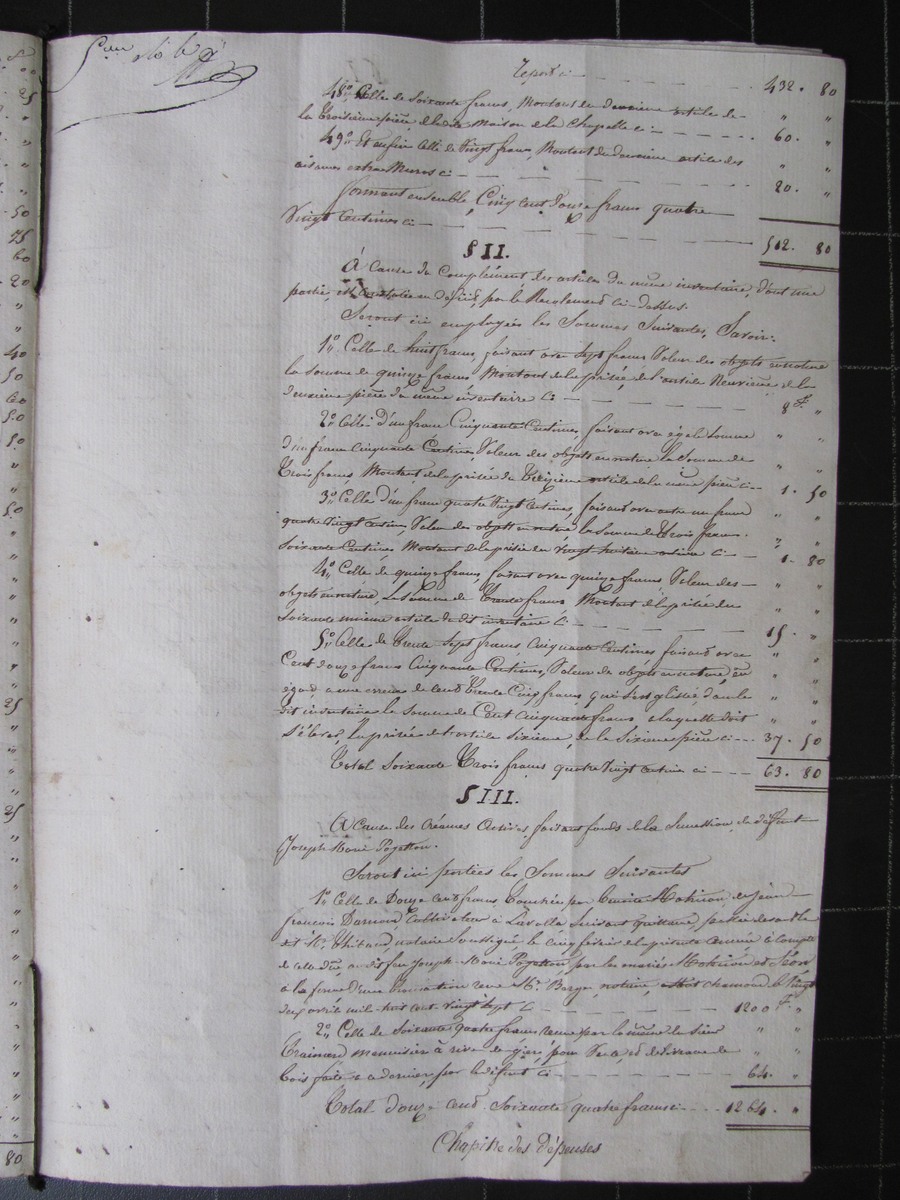 Report ci 432. 80
48° Celle de soixante francs, Montant du douzieme article de
la troisieme pièce de la dite Maison de la Chapelle ci 60. "
49° Et enfin Celle de Vingt francs, Montant du douzieme article des
aisances extra Muros ci 20. "
formant ensemble Cinq cent douze francs quatre
Vingt Centimes ci 512. 80
§ II.
A Cause du Complément des articles du même inventaire, dont une
partie, est en déficit, par le Recolement ci-dessus.
Seront ici employées les Sommes Suivantes, Savoir:
1° Celle de huit francs, faisant avec sept francs Valeur des objets en nature
la somme de quinze francs Montant de la prisée de l'article Neuvieme de la
deuxieme pièce du même inventaire ci 8 f. "
2° Celle d'un franc Cinquante Centimes, faisant avec égale somme
d'un franc Cinquante Centimes Valeur des objets en nature la Somme de
Trois francs, Montant de la prisée du Treizieme article de la même pièce ci 1. 50
3° Celle d'un franc quatre Vingt Centimes, faisant avec autre un franc
quatre Vingt Centimes, Valeur des objets en nature, la Somme de Trois francs
Soixante Centimes Montant de la prisée du vingt huitieme article ci 1. 80
4° Celle de quinze francs, faisant avec quinze francs Valeur des
objets en nature, la Somme de Trente francs Montant de la prisée du
Soixante unieme article du dit inventaire ci 15. "
5° Celle de Trente Sept francs Cinquante Centimes faisant avec
Cent douze francs Cinquante Centimes, Valeur des objets en nature en
égard, a une erreur de Cent Trente Cinq francs, qui s'est glissée, dans le
dit inventaire la somme de Cent Cinquante francs a laquelle doit
S'élever, la prisée de l'article Sixieme, de la Sixieme pièce ci 37. 50
Total Soixante Trois francs quatre Vingt centimes ci 63. 80
§ III.
A Cause des Créances Actives faisant fonds de la Succession, du défunt
Joseph Marie Pogetton.
Seront ici portées les Sommes Suivantes
1° Celle de Douze cents francs Comptée par Benoite Matricon, de jean
françois Darnon, Cultivateur à Lavalla Suivant quittance, passée devant le
dit Me. Thibaud, notaire Soussigné le cinq fevrier de la présente année à compte
de celle due au dit feu Joseph Marie Pogetton, par les mariés Matricon et
a la forme d'une recue Me. Berger, notaire, a Saint chamond le Vingt
deux avril mil huit cent vingt sept ci 1200 f. "
2° Celle de Soixante quatre francs recue par la même du sieur
menuisier à rive de gier, pour Vente et délivrance de
bois faite a ce dernier, par le défunt ci 64. "
Total douze cent Soixante quatre francs ci 1264. "
Chapitre des Dépenses